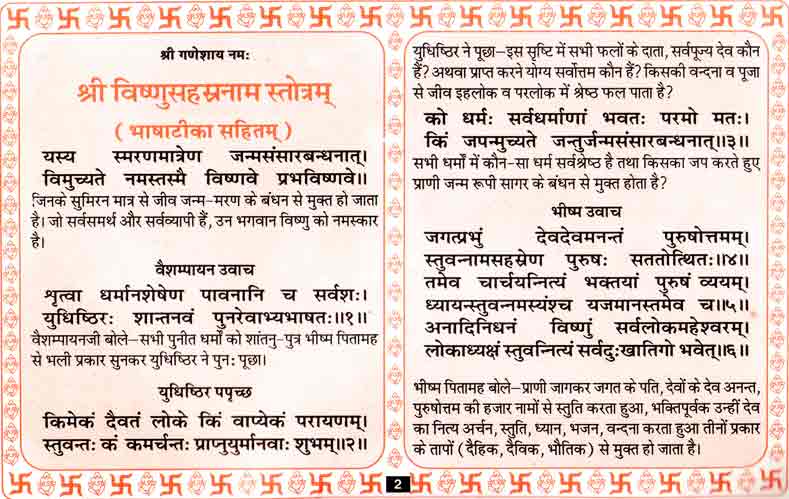 श्री गणेशाय नमः
श्री विष्णुसहस्रनाम स्तोत्रम्
( भाषाटीका सहितम् )
यस्य स्मरणमात्रेण जन्मसंसारबन्धनात्।
विमुच्यते नमस्तस्मै विष्णवे प्रभविष्णवे॥
जिनके सुमिरन मात्र से जीव जन्म–मरण के बंधन से मुक्त हो जाता
है। जो सर्वसमर्थ और सर्वव्यापी हैं, उन भगवान विष्णु को नमस्कार
है।
वैशम्पायन उवाच
श्रृत्वा धर्मानशेषेण पावनानि च सर्वशः।
युधिष्ठिरः शान्तनवं पुनरेवाभ्यभाषतः॥१॥
वैशम्पायनजी बोले–सभी पुनीत धर्मों को शांतनु-पुत्र भीष्म पितामह
से भली प्रकार सुनकर युधिष्ठिर ने पुनः पूछा।
युधिष्ठिर पपृच्छ
किमेकं दैवतं लोके किं वाप्येकं परायणम्।
स्तुवन्तः कं कमर्चन्तः प्राप्नुयुर्मानवाः शुभम्॥२॥
युधिष्ठिर ने पूछा–इस सृष्टि में सभी फलों के दाता, सर्वपूज्य देव कौन
हैं? अथवा प्राप्त करने योग्य सर्वोत्तम कौन हैं? किसकी वन्दना व पूजा
से जीव इहलोक व परलोक में श्रेष्ठ फल पाता है?
को धर्मः सर्वधर्माणां भवतः परमो मतः।
किं जपन्मुच्यते जन्तुर्जन्मसंसारबन्धनात्॥३॥
सभी धर्मों में कौन-सा धर्म सर्वश्रेष्ठ है तथा किसका जप करते हुए
प्राणी जन्म रूपी सागर के बंधन से मुक्त होता है?
भीष्म उवाच
जगत्प्रभुं देवदेवमनन्तं पुरुषोत्तमम्।
स्तुवन्नामसहस्रेण पुरुषः सततोत्थितः॥४॥
तमेव चार्चयन्नित्यं भक्तयां पुरुषं व्ययम्।
ध्यायन्स्तुवन्नमस्यंश्च यजमानस्तमेव च॥५॥
अनादिनिधनं विष्णुं सर्वलोकमहेश्वरम्।
लोकाध्यक्षं स्तुवन्नित्यं सर्वदुःखातिगो भवेत्॥६॥
भीष्म पितामह बोले–प्राणी जागकर जगत के पति, देवों के देव अनन्त,
पुरुषोत्तम की हजार नामों से स्तुति करता हुआ, भक्तिपूर्वक उन्हीं देव
का नित्य अर्चन, स्तुति, ध्यान, भजन, वन्दना करता हुआ तीनों प्रकार
के तापों (दैहिक, दैविक, भौतिक) से मुक्त हो जाता है।
2